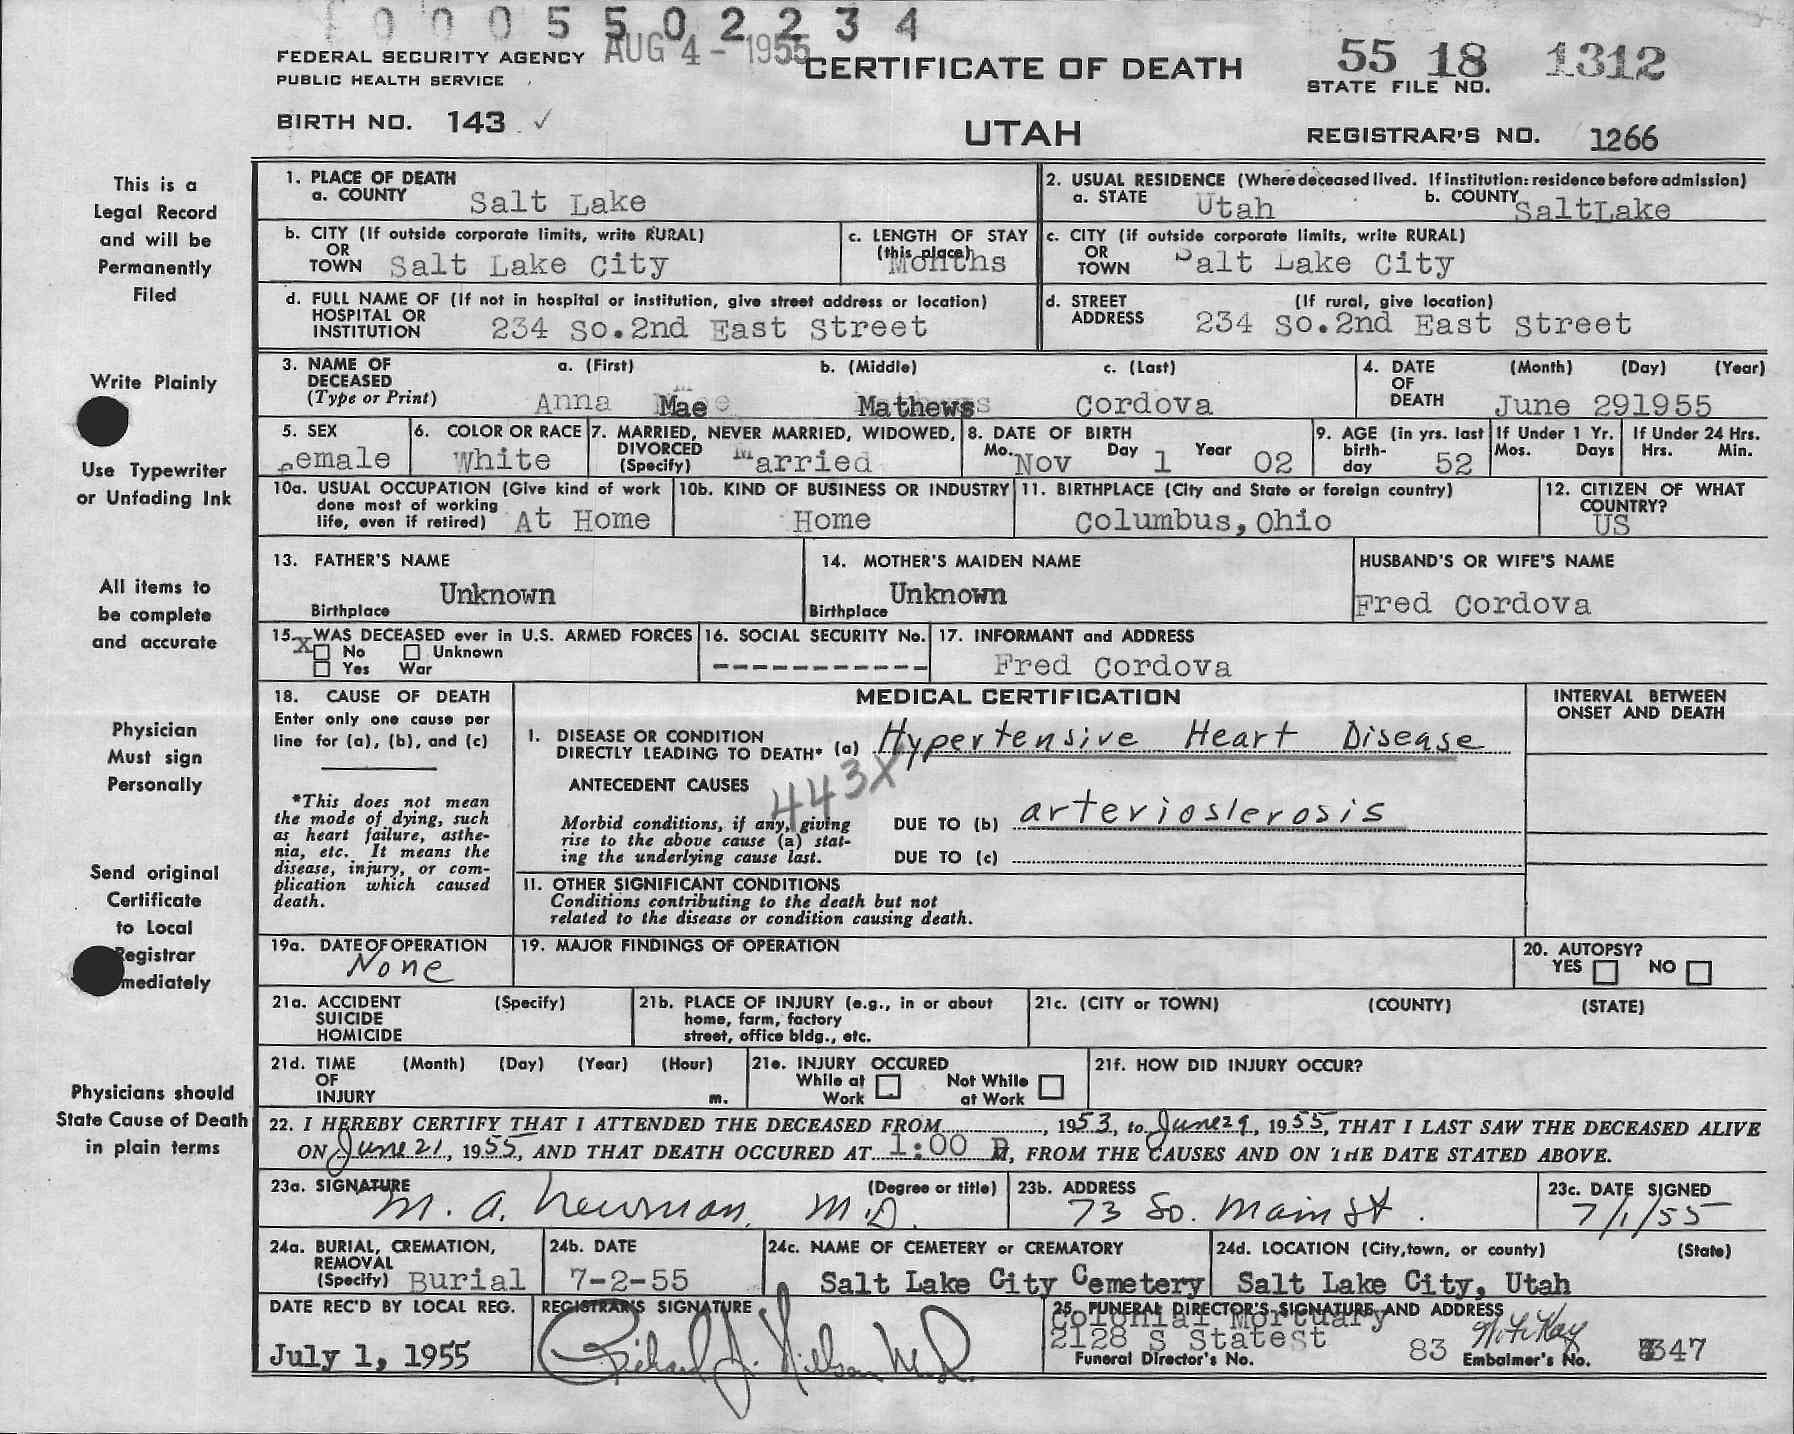 0 0 0 5 5 0 2 2 3 4
AUG 4 - 1955
FEDERAL SECURITY AGENCY
PUBLIC HEALTH SERVICE
CERTIFICATE OF DEATH
55 18 1312
STATE FILE NO.
BIRTH NO. 143 ✓
UTAH
REGISTRAR'S NO. 1266
This is a
Legal Record
and will be
Permanently
Filed
Write Plainly
Use Typewriter
or Unfading Ink
All items to
be complete
and accurate
Physician
Must sign
Personally
Send original
Certificate
to Local
Registrar
mediately
Physicians should
State Cause of Death
in plain terms
1. PLACE OF DEATH
a. COUNTY Salt Lake
2. USUAL RESIDENCE (Where deceased lived. If institution: residence before admission)
a. STATE Utah b. COUNTY SaltLake
b. CITY (If outside corporate limits, write RURAL)
OR
TOWN Salt Lake City
c. LENGTH OF STAY
(this place) Months
c. CITY (if outside corporate limits, write RURAL)
OR
TOWN Salt Lake City
d. FULL NAME OF (If not in hospital or institution, give street address or location)
HOSPITAL OR
INSTITUTION 234 So.2nd East Street
d. STREET (If rural, give location)
ADDRESS 234 So.2nd East Street
3. NAME OF a. (First) b. (Middle) c. (Last)
DECEASED
(Type or Print) Anna Mae Mathews Cordova
4. DATE (Month) (Day) (Year)
OF
DEATH June 291955
5. SEX
Female
6. COLOR OR RACE
White
7. MARRIED, NEVER MARRIED, WIDOWED,
DIVORCED
(Specify) Married
8. DATE OF BIRTH
Mo. Nov Day 1 Year 02
9. AGE (in yrs. last
birth-
day 52
If Under 1 Yr.
Mos. Days
If Under 24 Hrs.
Hrs. Min.
10a. USUAL OCCUPATION (Give kind of work
done most of working
life, even if retired) At Home
10b. KIND OF BUSINESS OR INDUSTRY
Home
11. BIRTHPLACE (City and State or foreign country)
Columbus, Ohio
12. CITIZEN OF WHAT
COUNTRY?
US
13. FATHER'S NAME
Unknown
Birthplace
14. MOTHER'S MAIDEN NAME
Unknown
Birthplace
HUSBAND'S OR WIFE'S NAME
Fred Cordova
15. WAS DECEASED ever in U.S. ARMED FORCES
X No Unknown
Yes War
16. SOCIAL SECURITY No.
-----------
17. INFORMANT and ADDRESS
Fred Cordova
18. CAUSE OF DEATH
Enter only one cause per
line for (a), (b), and (c)
*This does not mean
the mode of dying, such
as heart failure, asthe-
nia, etc. It means the
disease, injury, or com-
plication which caused
death.
MEDICAL CERTIFICATION
INTERVAL BETWEEN
ONSET AND DEATH
I. DISEASE OR CONDITION
DIRECTLY LEADING TO DEATH* (a) Hypertensive Heart Disease
ANTECEDENT CAUSES
443X
Morbid conditions, if any, giving
rise to the above cause (a) stat-
ing the underlying cause last.
DUE TO (b) arterioslerosis
DUE TO (c)
11. OTHER SIGNIFICANT CONDITIONS
Conditions contributing to the death but not
related to the disease or condition causing death.
19a. DATE OF OPERATION
None
19. MAJOR FINDINGS OF OPERATION
20. AUTOPSY?
YES NO
21a. ACCIDENT (Specify)
SUICIDE
HOMICIDE
21b. PLACE OF INJURY (e.g., in or about
home, farm, factory
street, office bldg., etc.
21c. (CITY or TOWN) (COUNTY) (STATE)
21d. TIME (Month) (Day) (Year) (Hour)
OF
INJURY m.
21e. INJURY OCCURED
While at Work Not While at Work
21f. HOW DID INJURY OCCUR?
22. I HEREBY CERTIFY THAT I ATTENDED THE DECEASED FROM..., 1953, to June 29, 1955, THAT I LAST SAW THE DECEASED ALIVE
ON June 21, 1955, AND THAT DEATH OCCURED AT 1:00 P, FROM THE CAUSES AND ON THE DATE STATED ABOVE.
23a. SIGNATURE (Degree or title)
M. A. Newman, M.D.
23b. ADDRESS
73 So. Main St.
23c. DATE SIGNED
7/1/55
24a. BURIAL, CREMATION,
REMOVAL
(Specify) Burial
24b. DATE
7-2-55
24c. NAME OF CEMETERY or CREMATORY
Salt Lake City Cemetery
24d. LOCATION (City, town, or county) (State)
Salt Lake City, Utah
DATE REC'D BY LOCAL REG.
July 1, 1955
REGISTRAR'S SIGNATURE
Richard J. Nielson M.D.
25. FUNERAL DIRECTOR'S SIGNATURE AND ADDRESS
Colonial Mortuary
2128 S Statest
Funeral Director's No. 83 Embalmer's No. 347